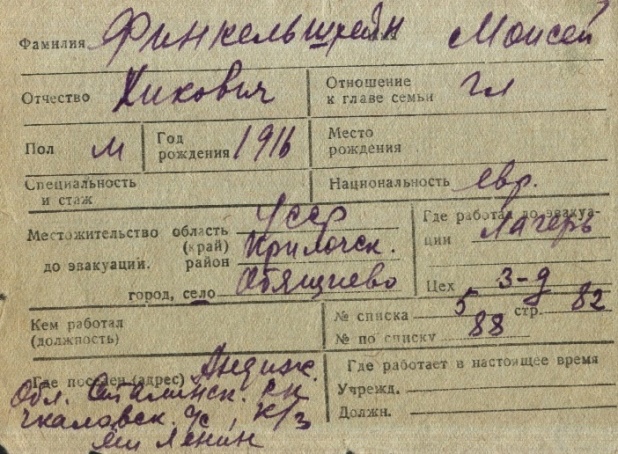 Фамилия Финкельштейн Моисей
Отчество Хикович Отношение к главе семьи гл
Пол м Год рождения 1916 Место рождения
Специальность и стаж Национальность евр.
Местожительство область УССР Где работал до эвакуа-
(край) ции Лагерь
до эвакуации. район Крилочск.
город, село Обящиево Цех 3-д
Кем работал № списка 5 стр. 82
(должность) № по списку 88
Где поселен (адрес) Андиж. Где работает в настоящее время
Обл. Сталинск. Учрежд.
Чкаловск. с/с, к/з Должн.
Ленин